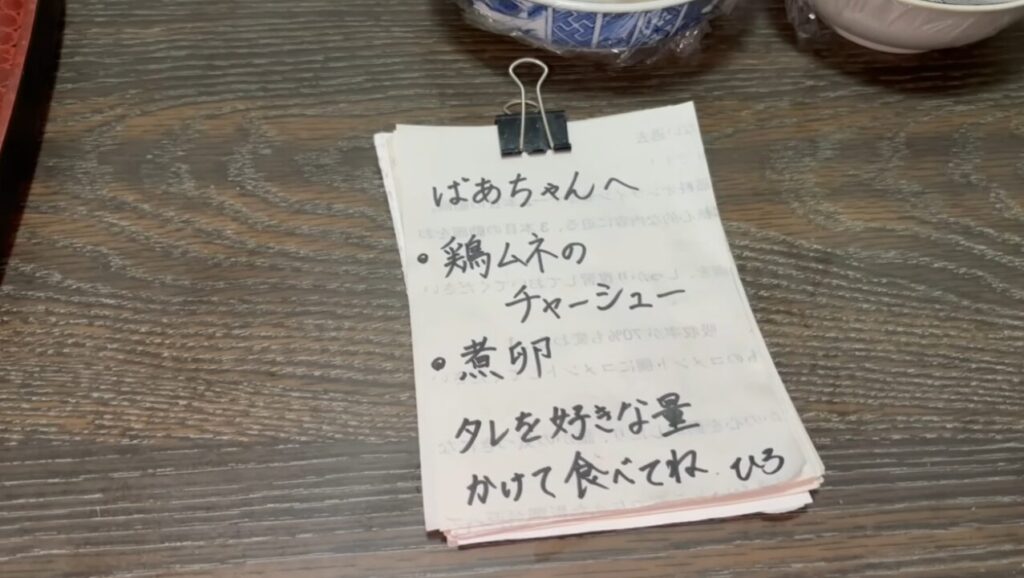 ばあちゃんへ
・鶏ムネの
チャーシュー
・煮卵
タレを好きな量
かけて食べてね ひろ